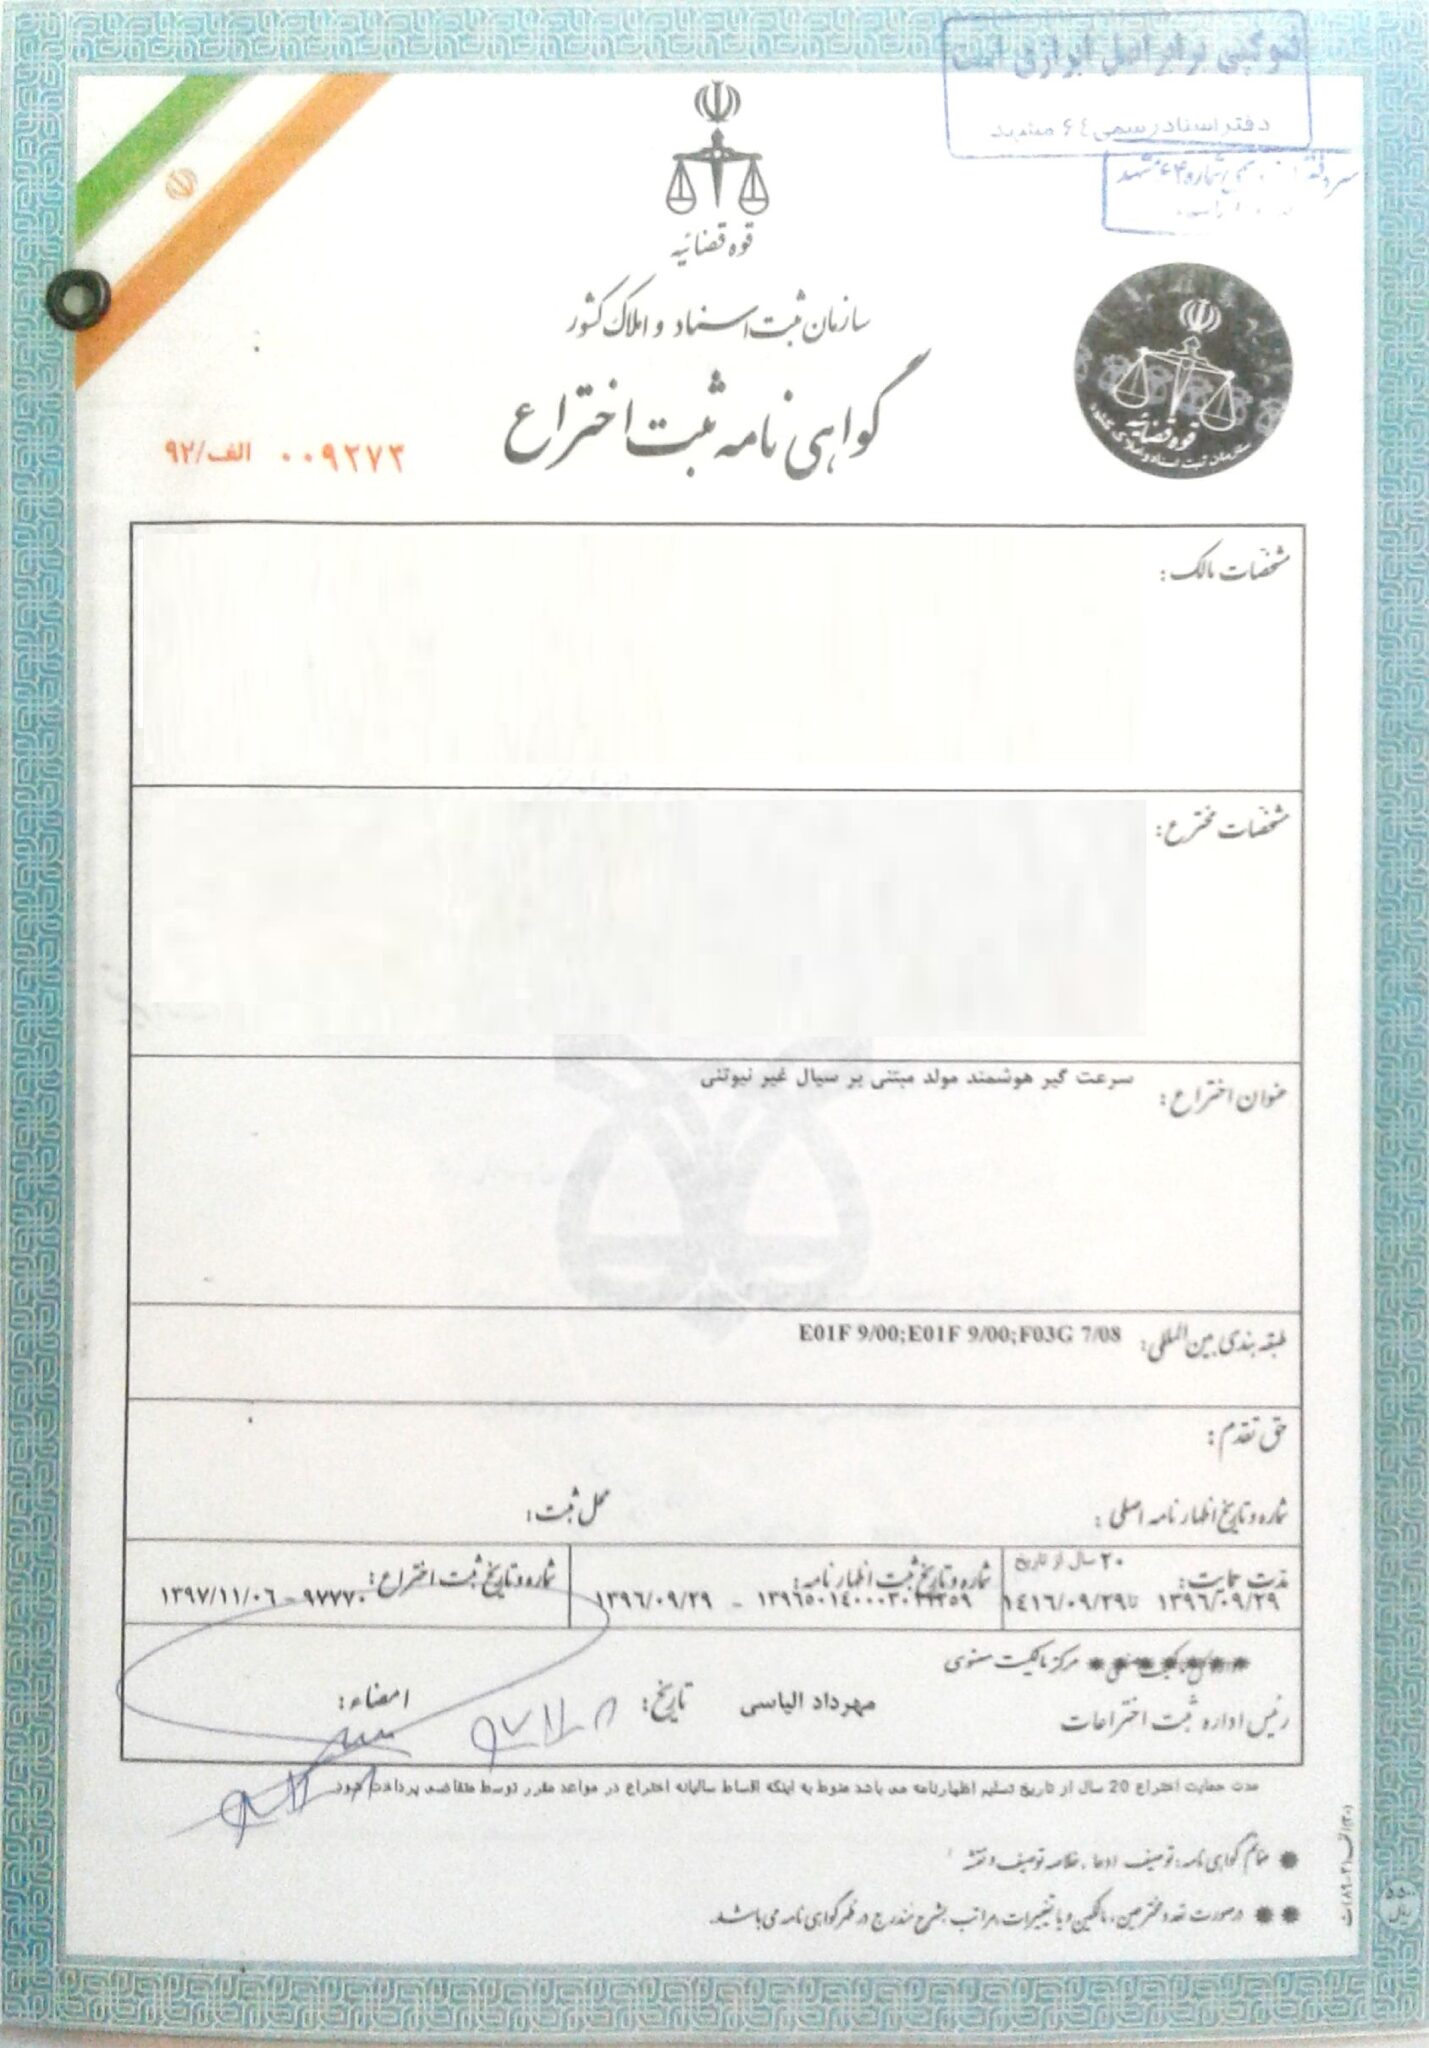 فتوکپی برابر اصل ابرازی است
دفتر اسناد رسمی ٦٤ مشهد
شماره ۶۴ مشهد
قوه قضائیه
سازمان ثبت اسناد و املاک کشور
گواهی نامه ثبت اختراع
قوه قضائیه
سازمان ثبت اسناد و املاک کشور
۰۰۹۲۷۳ الف/۹۲
مشخصات مالک:
مشخصات مخترع:
عنوان اختراع: سرعت گیر هوشمند مولد مبتنی بر سیال غیر نیوتنی
طبقه بندی بین المللی: E01F 9/00;E01F 9/00;F03G 7/08
حق تقدم:
شماره و تاریخ اظهارنامه اصلی: محل ثبت:
مدت حمایت: ۲۰ سال از تاریخ ۱۳۹٦/۰۹/۲۹ تا ۱٤۱٦/۰۹/۲۹
شماره و تاریخ ثبت اظهارنامه: - ۱۳۹٦/۰۹/۲۹
شماره و تاریخ ثبت اختراع: ۹۷۷۷۰ - ۱۳۹۷/۱۱/۰٦
مرکز مالکیت معنوی
رئیس اداره ثبت اختراعات مهرداد الیاسی تاریخ: امضاء:
مدت حمایت اختراع 20 سال از تاریخ تسلیم اظهارنامه می باشد منوط به اینکه اقساط سالیانه اختراع در مواعد مقرر توسط متقاضی پرداخت شود
ضمائم گواهی نامه: توصیف، ادعا، خلاصه توصیف و نقشه
درصورت تعدد مخترعین، مالکین و یا تغییرات، مراتب بشرح مندرج در ظهر گواهی نامه می باشد.